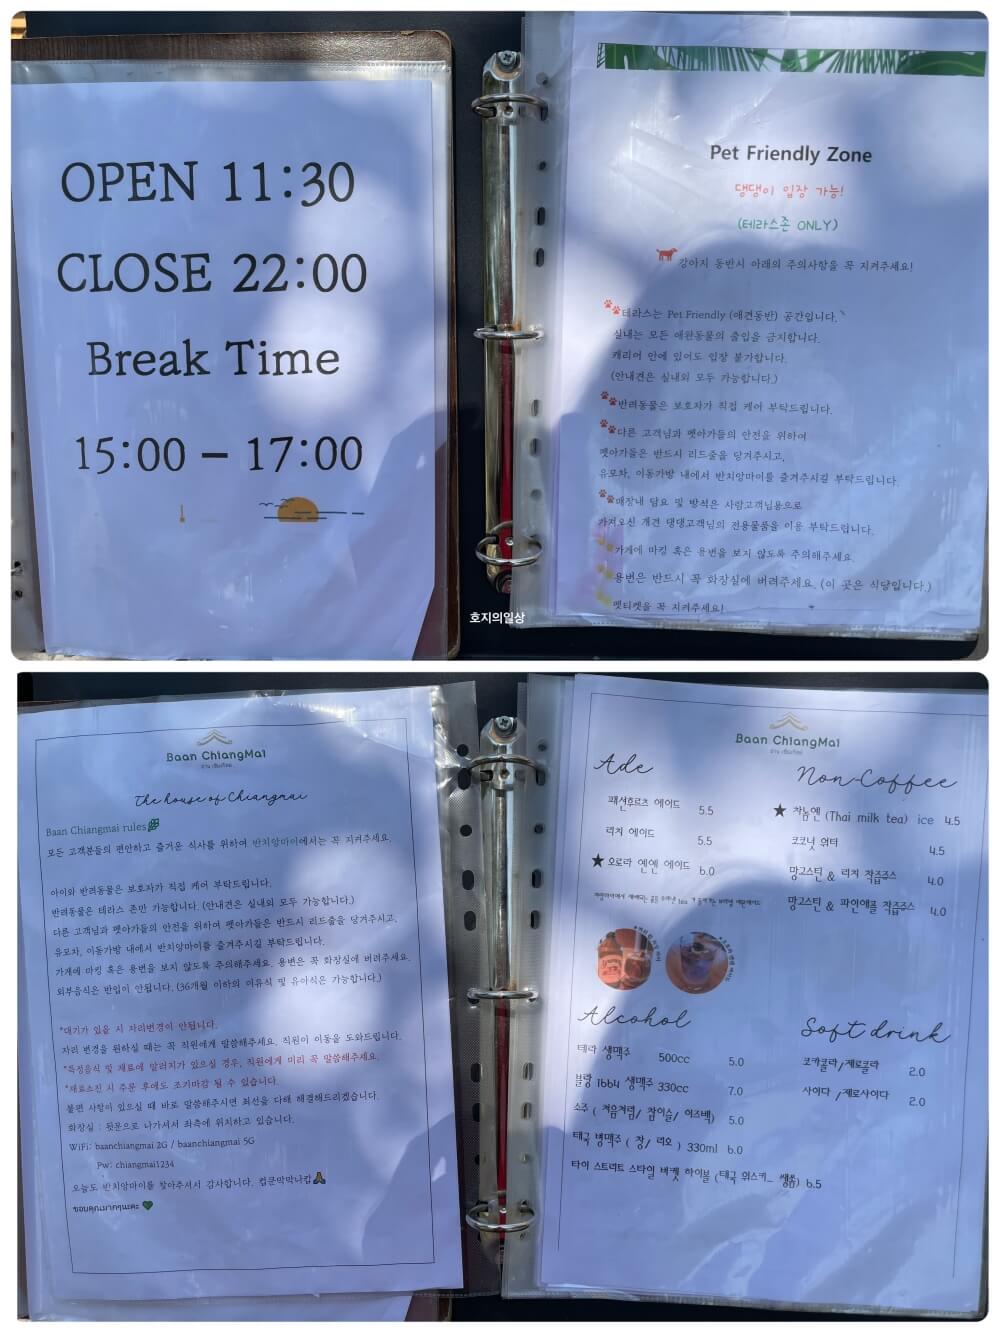 OPEN 11:30
CLOSE 22:00
Break Time
15:00 – 17:00
Pet Friendly Zone
댕댕이 입장 가능!
(테라스존 ONLY)
강아지 동반시 아래의 주의사항을 꼭 지켜주세요!
테라스는 Pet Friendly (애견동반) 공간입니다.
실내는 모든 애완동물의 출입을 금지합니다.
캐리어 안에 있어도 입장 불가합니다.
(안내견은 실내외 모두 가능합니다.)
반려동물은 보호자가 직접 케어 부탁드립니다.
다른 고객님과 펫아가들의 안전을 위하여
펫아가들은 반드시 리드줄을 당겨주시고,
유모차, 이동가방 내에서 반치앙마이를 즐겨주시길 부탁드립니다.
매장내 담요 및 방석은 사람고객님용으로
가져오신 개견 댕댕고객님의 전용물품을 이용 부탁드립니다.
가게에 마킹 혹은 용변을 보지 않도록 주의해주세요.
용변은 반드시 꼭 화장실에 버려주세요. (이 곳은 식당입니다.)
펫티켓을 꼭 지켜주세요!
호지의일상
Baan ChiangMai
บ้าน เชียงใหม่
The house of Chiangmai
Baan Chiangmai rules
모든 고객분들의 편안하고 즐거운 식사를 위하여 반치앙마이에서는 꼭 지켜주세요.
아이와 반려동물은 보호자가 직접 케어 부탁드립니다.
반려동물은 테라스 존만 가능합니다. (안내견은 실내외 모두 가능합니다.)
다른 고객님과 펫아가들의 안전을 위하여 펫아가들은 반드시 리드줄을 당겨주시고,
유모차, 이동가방 내에서 반치앙마이를 즐겨주시길 부탁드립니다.
가게에 마킹 혹은 용변을 보지 않도록 주의해주세요. 용변은 꼭 화장실에 버려주세요.
외부음식은 반입이 안됩니다. (36개월 이하의 이유식 및 유아식은 가능합니다.)
*대기가 있을 시 자리변경이 안됩니다.
자리 변경을 원하실 때는 꼭 직원에게 말씀해주세요. 직원이 이동을 도와드립니다.
*특정음식 및 재료에 알러지가 있으실 경우, 직원에게 미리 꼭 말씀해주세요.
*재료소진 시 주문 후에도 조기마감 될 수 있습니다.
불편 사항이 있으실 때 바로 말씀해주시면 최선을 다해 해결해드리겠습니다.
화장실 : 뒷문으로 나가셔서 좌측에 위치하고 있습니다.
WiFi: baanchiangmai 2G / baanchiangmai 5G
Pw: chiangmai1234
오늘도 반치앙마이를 찾아주셔서 감사합니다. 컵쿤막막나캅
ขอบคุณมากๆนะคะ
Baan ChiangMai
บ้าน เชียงใหม่
Ade
패션후르츠 에이드 5.5
리치 에이드 5.5
★ 오로라 엔엔 에이드 6.0
Non-Coffee
★ 차놈옌 (Thai milk tea) ice 4.5
코코넛 워터 4.5
망고스틴 & 리치 착즙쥬스 4.0
망고스틴 & 파인애플 착즙쥬스 4.0
Alcohol
테라 생맥주 500cc 5.0
블랑 1664 생맥주 330cc 7.0
소주 ( 처음처럼/ 참이슬/ 이즈백) 5.0
태국 병맥주 ( 창/ 리오 ) 330ml 6.0
타이 스트리트 스타일 버켓 하이볼 (태국 위스키_ 쌩쏨) 6.5
Soft drink
코카콜라/제로콜라 2.0
사이다 /제로사이다 2.0